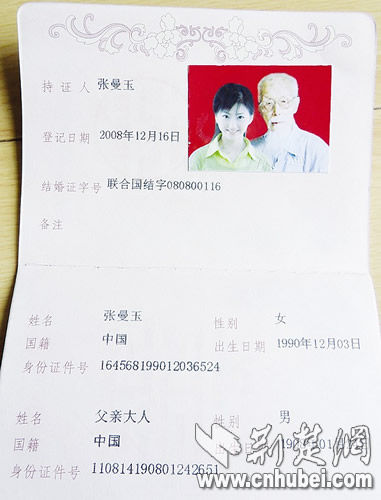 持证人 张曼玉
登记日期 2008年12月16日
结婚证字号 联合国结字080800116
备注
姓名 张曼玉 性别 女
国籍 中国 出生日期 1990年12月03日
身份证件号 164568199012036524
姓名 父亲大人 性别 男
国籍 中国 出生日期
身份证件号 110814190801242651
荆楚网
www.cnhubei.com